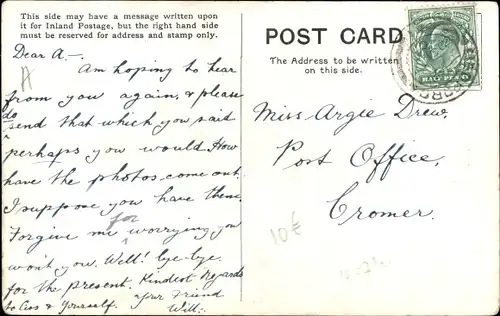 This side may have a message written upon
it for Inland Postage, but the right hand side
must be reserved for address and stamp only.
Dear A—.
Am hoping to hear
from you again, & please
do
send that which you said
perhaps you would. How
have the photos come out
I suppose you have them.
for
Forgive me worrying you
won't you. Well! bye-bye.
for the present. Kindest Regards
to Ciss & Yourself. Your Friend
Will:-
POST CARD
The Address to be written
on this side.
HALFPENNY
Miss Argie Drew.
Post Office,
Cromer.
10€